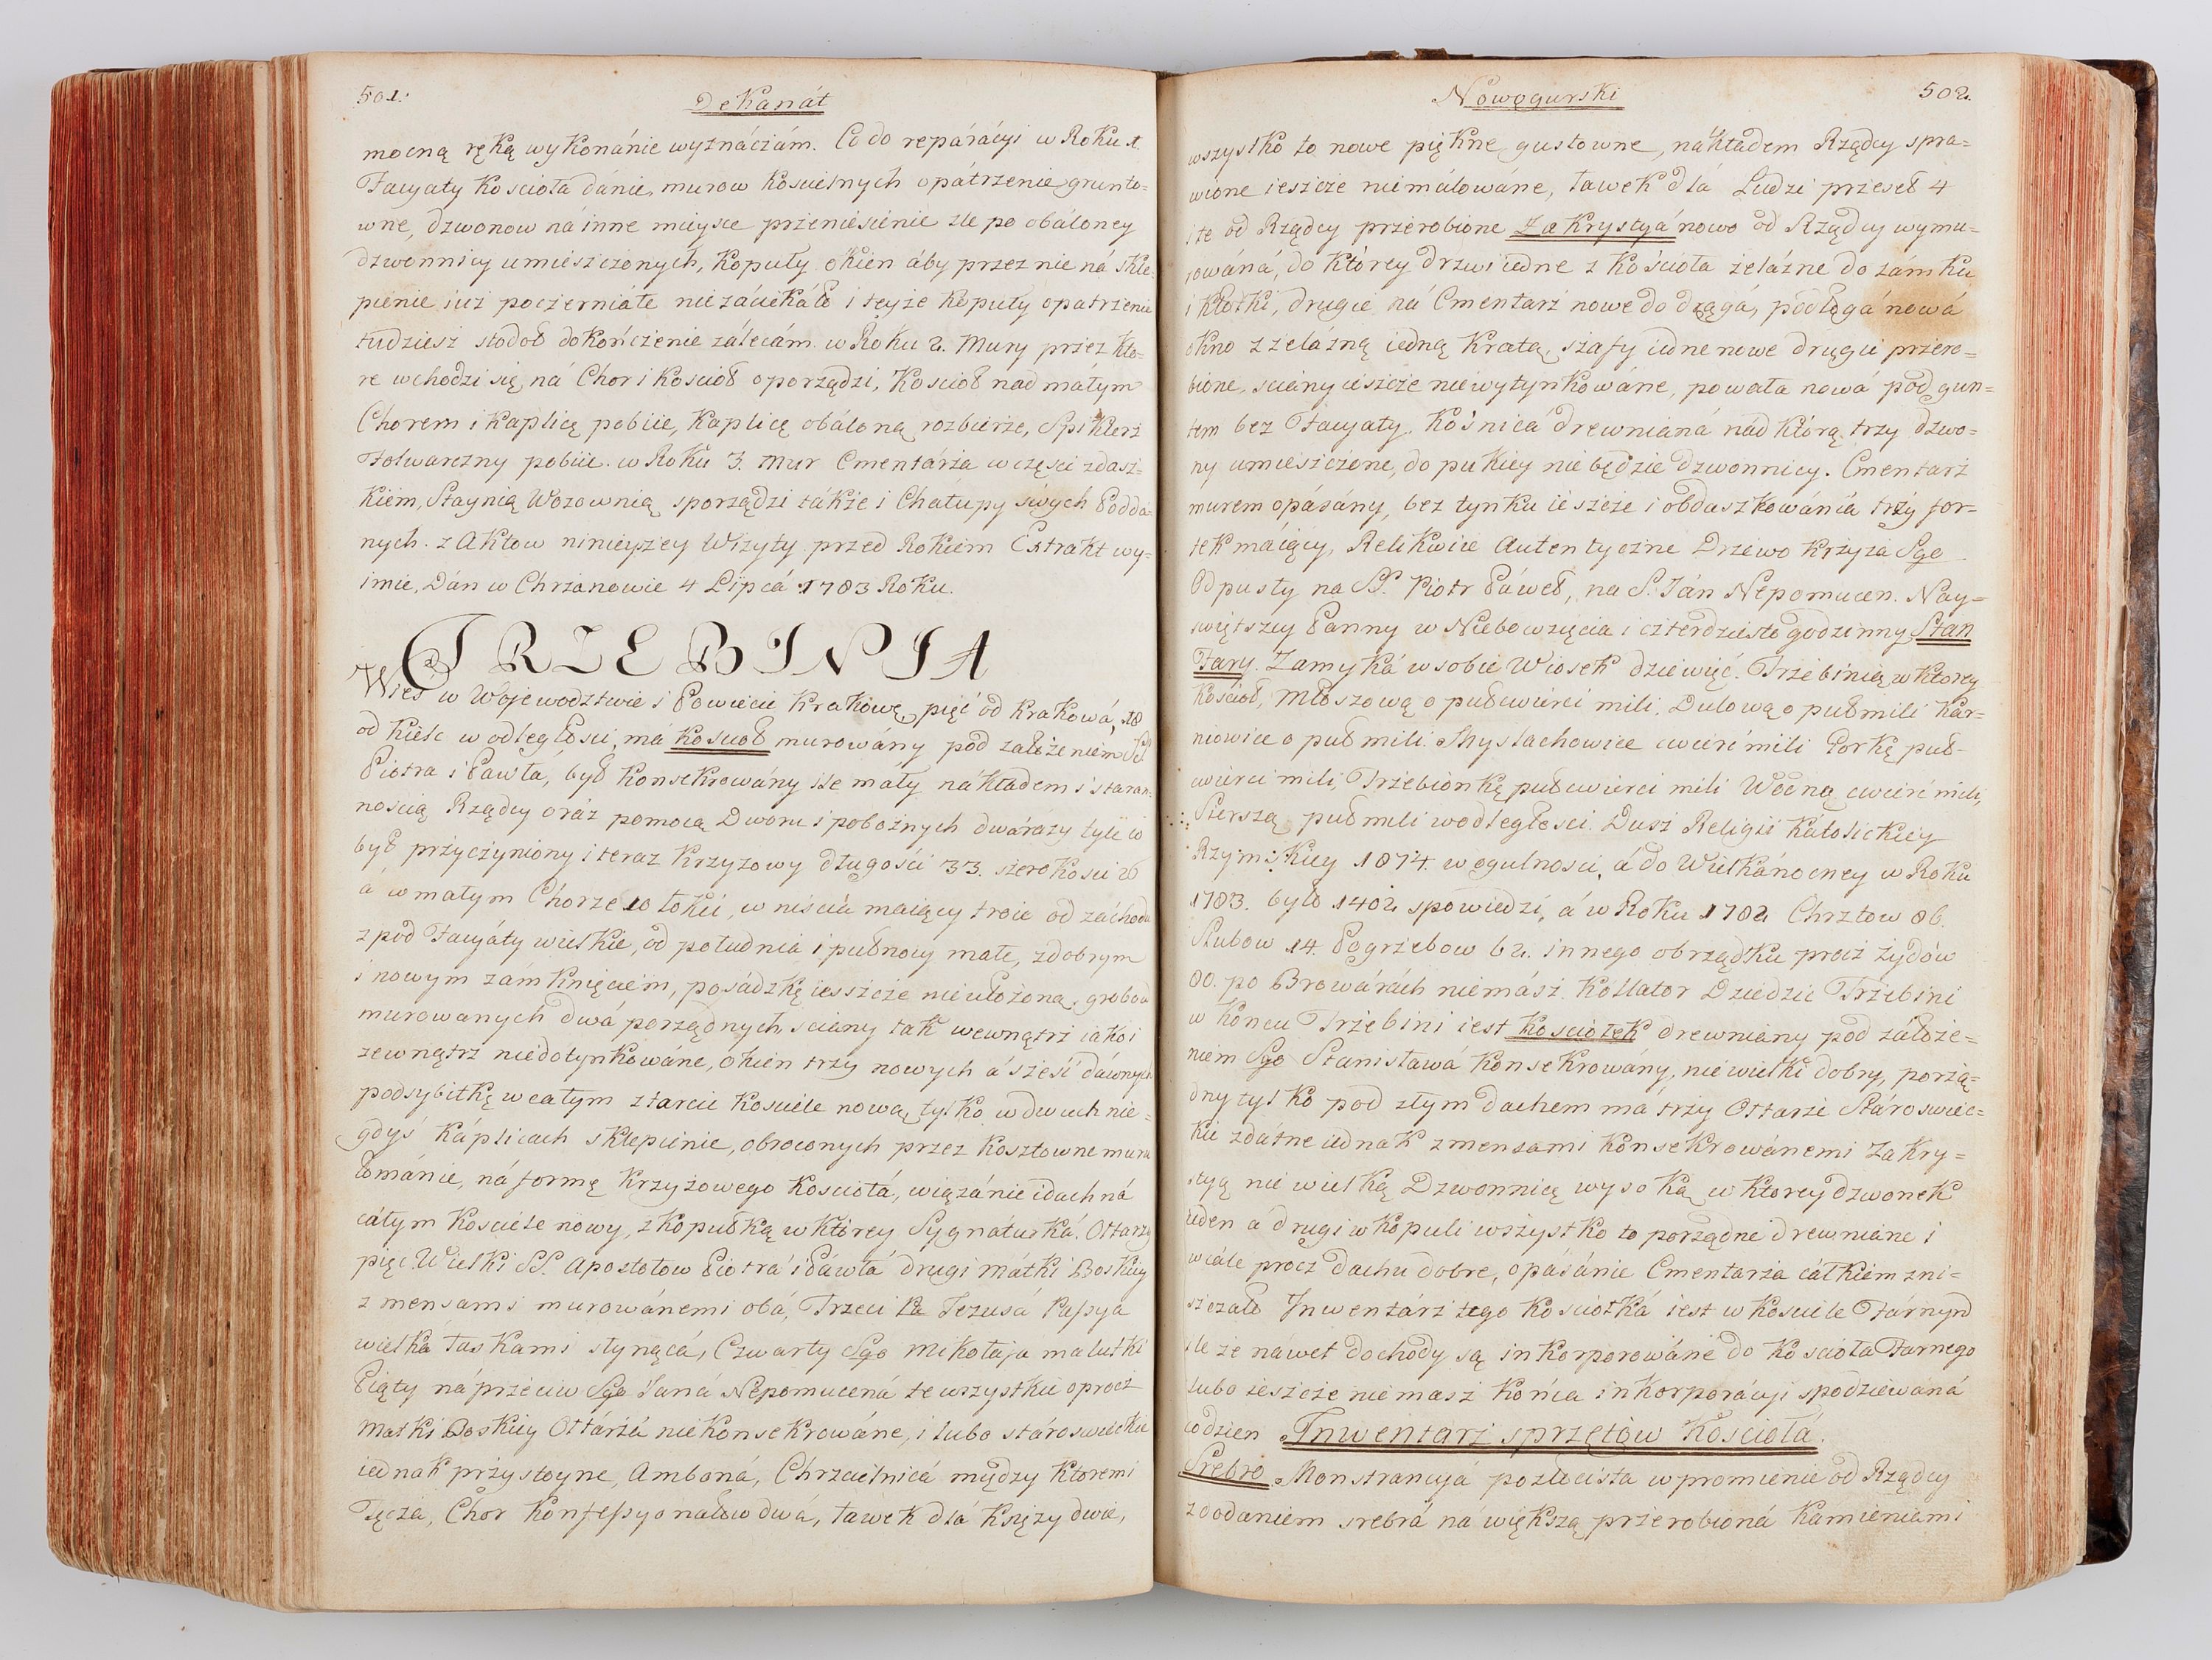 501.
Dekanát
mocną ręką wykonánie wyznáczám. Co do reparácyi w Roku 1.
Facyaty Kosciola dánie, murow Koscielnych opátrzenie grunto=
wne, dzwonow ná inne mieysce przeniesienie zle po obáloney
dzwonnicy umieszczonych, Kopuły okien áby przez nie ná skle=
pienie iuż poczerniáłe niezáciekáło i teyże Kopuły opatrzenie
tudziesz stodoł dokończenie zálecám. w Roku 2. Mury przez Kto=
re wchodzi się ná Chor i Koscioł oporządzi, Koscioł nad máłym
Chorem i Kaplicę pobiie, Kaplicę obáloną rozbierze, Spiklerz
Folwarczny pobiie. w Roku 3. Mur Cmentárza w częsci z dász=
kiem, Staynią Wozownią sporządzi tákże i Chałupy swych Poddá=
nych. z Aktow ninieyszey Wizyty przed Rokiem Extrakt wy=
imie, Dán w Chrzanowie 4 Lipcá 1783 Roku.
TRZEBINIA
Wieś w Wojewodztwie i Powiecie Krakowę, pięć od Krakowá, 18
od Kielc w odległosci, má Koscioł murowány pod założeniem SS
Piotra i Pawłá, był Konsekrowány ále máły nákładem i stáran=
noscią Rządcy oráz pomocą Dworu i pobożnych dwá razy tyle co
był przyczyniony i teraz Krzyżowy długości 33. szerokosci 26
á w małym Chorze 10 łokci, w niścia maiący troie od záchodu
z pod Facyáty wielkie, od południa i pułnocy małe, z dobrym
i nowym zámknięciem, posádzkę ieszcze nieułożoną, grobow
murowanych dwá porządnych, sciany ták wewnątrz iáko i
zewnątrz niedotynkowáne, okien trzy nowych á sześć dáwnych
podsybitkę w całym ztarcie Kosciele nową, tylko w dwuch nie=
gdyś Káplicach sklepienie, obroconych przez Kosztowne muru
łománie, ná formę Krzyżowego Kosciołá, wiązánie i dach ná
cáłym Kosciele nowy, z kopułką w ktorey Sygnáturká. Ołtarzy
pięc. Wielki SS. Apostołow Piotrá i Páwłá drugi Mátki Boskiey
z mensami murowánemi obá, Trzeci Pa Jezusá Passya
wielká łaskami słynącá, Czwarty Sgo Mikołaja malutki
Piąty náprzeciw Sgo Janá Nepomucená te wszystkie oprocz
Matki Boskiey Ołtárzá niekonsekrowáne, i lubo stároswieckie
iednak przystoyne, Amboná, Chrzcielnicá między Ktoremi
Tęcza, Chor Konfessyonałow dwá, ławek dlá Księży dwie,
Nowogurski
502.
wszystko to nowe piękne gustowne, nákładem Rządcy spra=
wione ieszcze niemálowáne, ławek dlá Ludzi przeseł 4
i te od Rządcy przerobione Zakrystyá nowo od Rządcy wymu=
rowáná, do ktorey drzwi iedne z Kościoła żelázne do zámku
i kłotki, drugie ná Cmentarz nowe do drągá, podłogá nowá
okno z żelázną iedną Kratą, szafy iedne nowe drugie przero=
bione, sciány ieszcze niewytynkowáne, powała nowá pod gun=
tem bez Facyaty. Kośnicá drewnianá nad którą trzy dzwo=
ny umieszczone, do pukiey nie będzie dzwonnicy. Cmentarz
murem opásány, bez tynku ieszcze i obdaszkowániá trzy for=
tek maiący, Relikwie Autentyczne Drzewo Krzyża Sgo
Odpusty na SS. Piotr Páweł, na S. Ján Nepomucen. Nay=
swiętszey Panny w Niebowzięcia i czterdziesto godzinny Stan
Fary. Zamyká w sobie Wiosek dziewięć. Trzebinią w ktorey
Koscioł, Młoszową o pułcwierci mili. Dulową o pułmili Kar=
niowice o puł mili. Myslachowice cwierć mili Gorkę puł=
cwierci mili, Trzebionkę pułcwierci mili Wodną cwierć mili,
Sierszą puł mili w odległosci. Dusz Religii Katolickiey
Rzymskiey 1874. w ogulnosci, á do Wielkánocney w Roku
1783. było 1402 spowiedzi, á w Roku 1782 Chrztow 86.
Slubow 14. Pogrzebow 62. innego obrządku procz żydów
80. po Browárách niemász. Kollator Dziedzic Trzebini
w końcu Trzebini iest Kosciołek drewniany pod záłoże=
niem Sgo Stanisławá Konsekrowány, niewielki dobry, porzą=
dny tylko pod złym dachem má trzy Ołtarze Stároswiec=
kie zdátne iednak z mensami Konsekrowánemi Zakry=
styą nie wielką Dzwonnicę wysoką w ktorey dzwonek
ieden á drugi w kopuli wszystko to porządne drewniane i
wcále procz dachu dobre, opásánie Cmentarza cáłkiem zni=
szczało Jnwentárz tego Kosciołká iest w Kosciele Fárnym
ile że náwet dochody są inkorporowáne do Kosciołá Farnego
lubo ieszcze niemasz Końca inkorporácyi spodziewaná
codzien Jnwentarz sprzętów Kościołá.
Srebro. Monstrancyá pozłocista w promienie od Rządcy
z dodaniem srebrá ná większą przerobioná Kamieniami